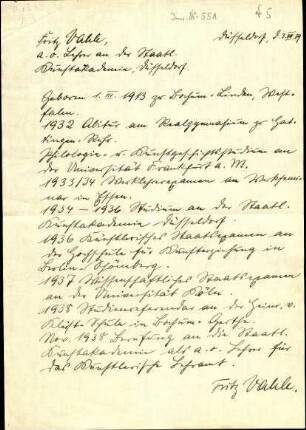 Inv.Nr. 55A
45
Fritz Vahle, Düsseldorf, d. 7. VII 39
a.o. Lehrer an der Staatl.
Kunstakademie, Düsseldorf.
Geboren 1. III. 1913 zu Bochum-Linden, West-
falen.
1932 Abitur am Realgymnasium zu Hat-
tingen-Ruhr.
Philologie- u. Kunstgeschichtsstudium an
der Universität Frankfurt a. M.
1933/34 Werklehrerexamen am Werksemi-
nar in Essen.
1934 – 1936 Studium an der Staatl.
Kunstakademie Düsseldorf.
1936 Künstlerisches Staatsexamen an
der Hochschule für Kunsterziehung in
Berlin-Schöneberg.
1937 Wissenschaftliches Staatsexamen
an der Universität Köln.
1938 Studienreferendar an der Heinr. v.
Kleist-Schule in Bochum-Gerthe.
Nov. 1938 Berufung an die Staatl.
Kunstakademie als a.o. Lehrer für
das Künstlerische Lehramt.
Fritz Vahle.